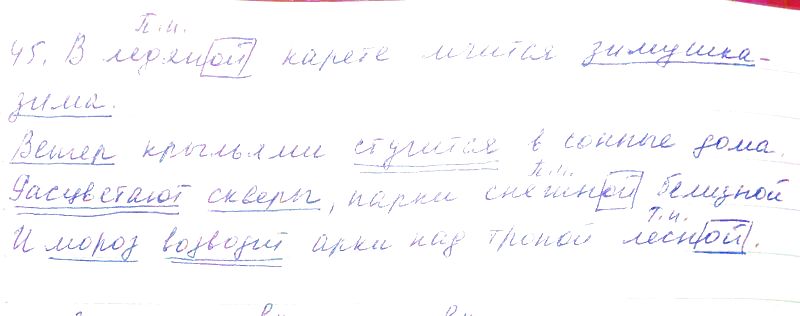 П.п.
45. В ледяной карете мчится зимушка-
зима.
Ветер крыльями стучится в сонные дома.
П.п.
Расцветают скверы, парки снежной белизной
Т.п.
И мороз возводит арки над тропой лесной.